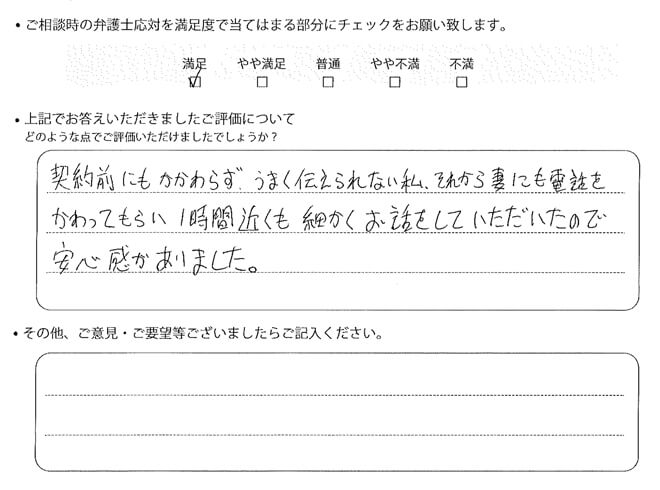 ・ご相談時の弁護士応対を満足度で当てはまる部分にチェックをお願い致します。
満足 やや満足 普通 やや不満 不満
・上記でお答えいただきましたご評価について
どのような点でご評価いただけましたでしょうか？
契約前にもかかわらず、うまく伝えられない私、それから妻にも電話を
かわってもらい1時間近くも細かくお話をしていただいたので
安心感がありました。
・その他、ご意見・ご要望等ございましたらご記入ください。